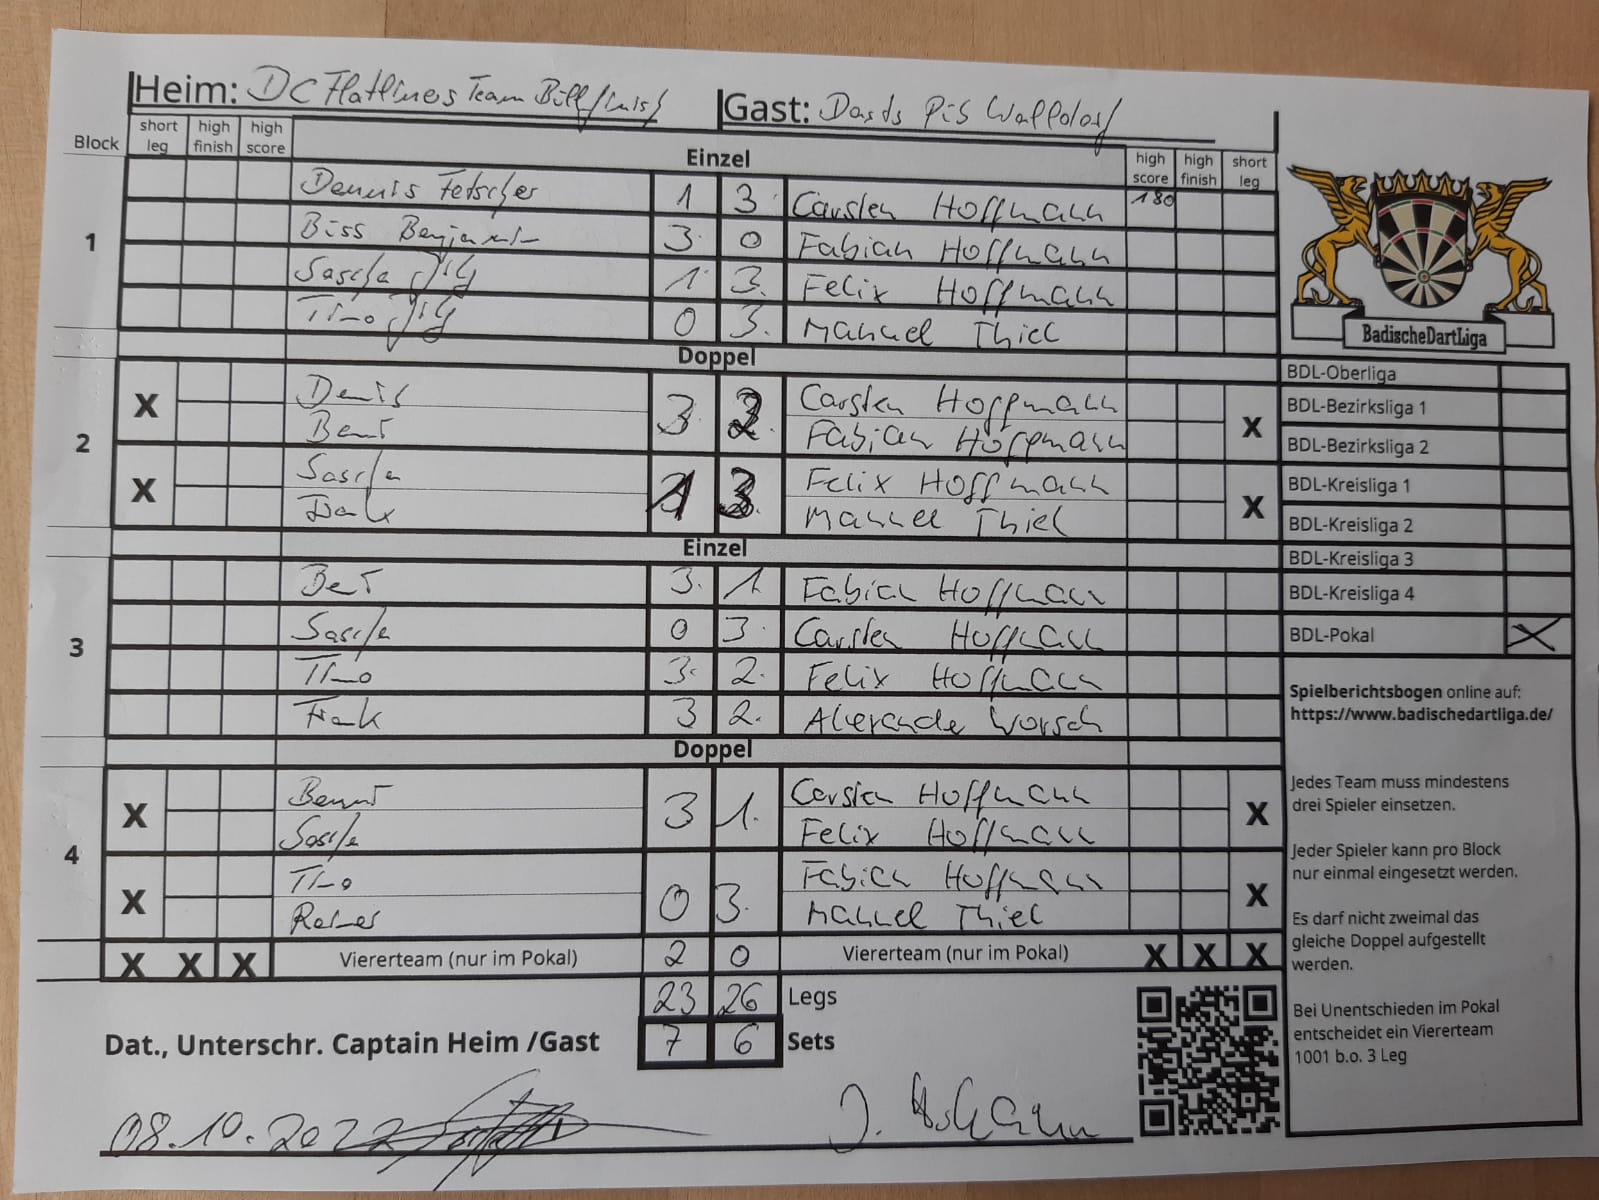 Heim: DC Flatliners Team Gast: Darts Pis Walldorf
Block short leg high finish high score Einzel high score high finish short leg
1
Dennis Fetscher 1 3 Carsten Hoffmann 180
Biss Benjamin 3 0 Fabian Hoffmann
Sascha Jilg 1 3. Felix Hoffmann
Timo Jilg 0 3. Manuel Thiel
Doppel
2
X Denis 3 2 Carsten Hoffmann X
Fabian Hoffmann
X Sascha 1 3 Felix Hoffmann X
Frank Manuel Thiel
Einzel
3
3. 1. Fabian Hoffmann
Sascha 0 3. Carsten Hoffmann
Timo 3. 2. Felix Hoffmann
Frank 3 2. Worsch
Doppel
4
X 3 1. Carsten Hoffmann X
Sascha Felix Hoffmann
X Timo 0 3. Fabian Hoffmann X
Manuel Thiel
X X X Viererteam (nur im Pokal) 2 0 Viererteam (nur im Pokal) X X X
23 26 Legs
Dat., Unterschr. Captain Heim /Gast 7 6 Sets
08.10.2022
BadischeDartLiga
BDL-Oberliga
BDL-Bezirksliga 1
BDL-Bezirksliga 2
BDL-Kreisliga 1
BDL-Kreisliga 2
BDL-Kreisliga 3
BDL-Kreisliga 4
BDL-Pokal X
Spielberichtsbogen online auf:
https://www.badischedartliga.de/
Jedes Team muss mindestens
drei Spieler einsetzen.
Jeder Spieler kann pro Block
nur einmal eingesetzt werden.
Es darf nicht zweimal das
gleiche Doppel aufgestellt
werden.
Bei Unentschieden im Pokal
entscheidet ein Viererteam
1001 b.o. 3 Leg